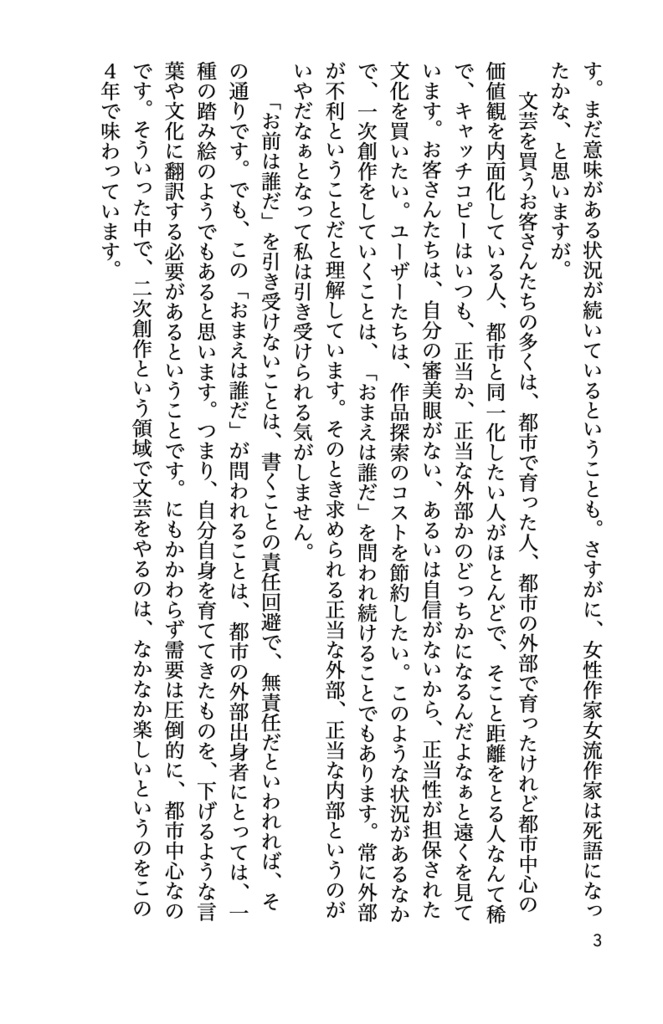 す。まだ意味がある状況が続いているということも。さすがに、女性作家女流作家は死語になっ
たかな、と思いますが。
　文芸を買うお客さんたちの多くは、都市で育った人、都市の外部で育ったけれど都市中心の
価値観を内面化している人、都市と同一化したい人がほとんどで、そこと距離をとる人なんて稀
で、キャッチコピーはいつも、正当か、正当な外部かのどっちかになるんだよなぁと遠くを見て
います。お客さんたちは、自分の審美眼がない、あるいは自信がないから、正当性が担保された
文化を買いたい。ユーザーたちは、作品探索のコストを節約したい。このような状況があるなか
で、一次創作をしていくことは、「おまえは誰だ」を問われ続けることでもあります。常に外部
が不利ということだと理解しています。そのとき求められる正当な外部、正当な内部というのが
いやだなぁとなって私は引き受けられる気がしません。
　「お前は誰だ」を引き受けないことは、書くことの責任回避で、無責任だといわれれば、そ
の通りです。でも、この「おまえは誰だ」が問われることは、都市の外部出身者にとっては、一
種の踏み絵のようでもあると思います。つまり、自分自身を育ててきたものを、下げるような言
葉や文化に翻訳する必要があるということです。にもかかわらず需要は圧倒的に、都市中心なの
です。そういった中で、二次創作という領域で文芸をやるのは、なかなか楽しいというのをこの
4年で味わっています。
3